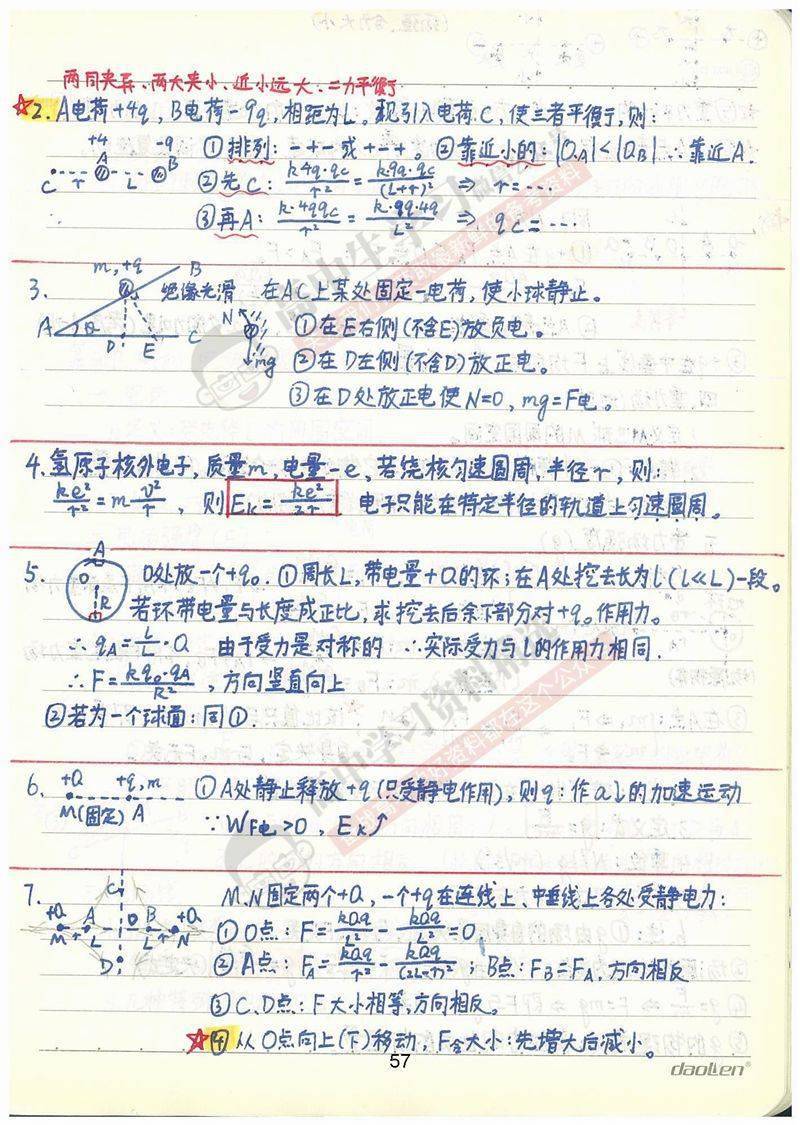 两同夹异、两大夹小、近小远大、二力平衡
☆2. A电荷+4q, B电荷-9q, 相距为L。现引入电荷C, 使三者平衡, 则:
+4 -9
A B
C r L
①排列: -+- 或 +-+。 ②靠近小的: |QA|<|QB| ∴靠近A.
②先C: k·4q·qc/r² = k·9q·qc/(L+r)² ⇒ r=……
③再A: k·4q·qc/r² = k·9q·4q/L² ⇒ qc=……
3. m,+q B 绝缘光滑 在AC上某处固定一电荷, 使小球静止。
A θ D E C N mg
①在E右侧(不含E)放负电。
②在D左侧(不含D)放正电。
③在D处放正电使N=0, mg=F电。
4. 氢原子核外电子, 质量m, 电量-e, 若绕核匀速圆周, 半径r, 则:
ke²/r² = m v²/r , 则 Ek = ke²/2r 电子只能在特定半径的轨道上匀速圆周。
A
O
R
5. O处放一个+q₀. ①周长L, 带电量+Q的环; 在A处挖去长为l(l≪L)一段。
若环带电量与长度成正比, 求挖去后余下部分对+q₀作用力。
∴ qA = l/L · Q 由于受力是对称的 ∴实际受力与l的作用力相同.
∴ F = kq₀·qA/R² , 方向竖直向上
②若为一个球面: 同①.
6. +Q +q,m ①A处静止释放+q(只受静电作用), 则q: 作a↓的加速运动
M(固定) A
∵ WF电>0, Ek↗
7. M.N固定两个+Q, 一个+q在连线上、中垂线上各处受静电力:
C
+Q A O B +Q
M r L L r N
D
①O点: F = kQq/L² - kQq/L² = 0
②A点: FA = kQq/r² - kQq/(2L-r)² ; B点: FB=FA, 方向相反
③C、D点: F大小相等, 方向相反。
☆④从O点向上(下)移动, F合大小: 先增大后减小。
57
daolien
高中生学习资料精选